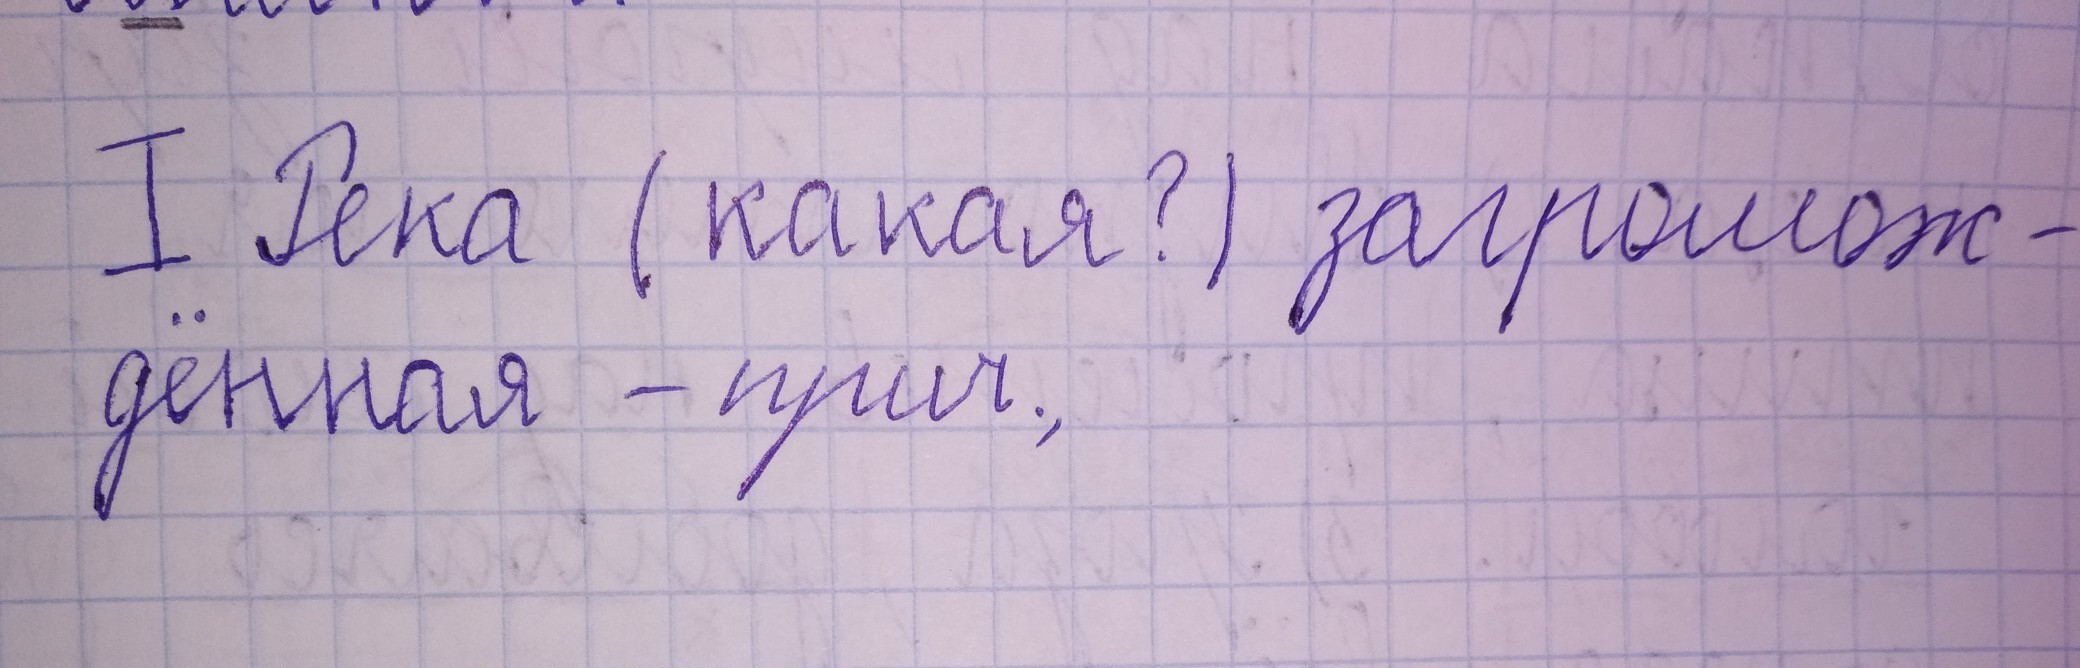 I Река (какая?) загромож-
дённая - прич.,